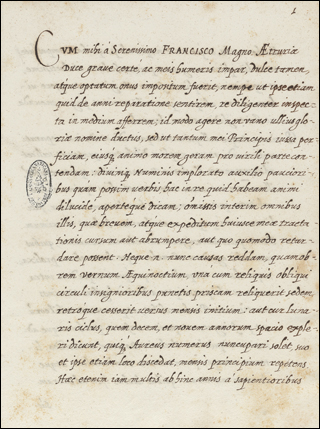 1
CVM mihi à Serenissimo FRANCISCO Magno Ætruriæ
Duce grave certè, ac meis humeris impar, dulce tamen,
atque optatum onus impositum fuerit, nempe ut ipse etiam
quid de anni reparatione sentirem, re diligenter inspec
ta in medium afferrem; id modo agere non vano ullius glo
riæ nomine ductus, sed ut tantum mei Principis iussa per
ficiam, eiusq animo morem geram pro virili parte con
tendam: divinig Numinis implorato auxilio pauciori
bus quam possim verbis hac in re quid habeam animi
dilucidè, aperteque dicam; omissis interim omnibus
illis, quæ brevem, atque expeditum huiusce meæ tracta
tionis cursum aut abrumpere, aut quo quomodo retar
dare possent. Neque n. nunc causas reddam, quamob
rem vernum Æquinoctium una cum reliquis obliqui
circuli insignioribus punctis priscam reliquerit sedem,
retroque cesserit verius mensis initium: aut cur luna
ris ciclus, quem decem, et novem annorum spacio exple
ri dicunt, quiq Aureus numerus nuncupari solet, suo
et ipse etiam loco discedat, mensis principium repetens
Hæc etenim iam multis abhinc annis à sapientioribus